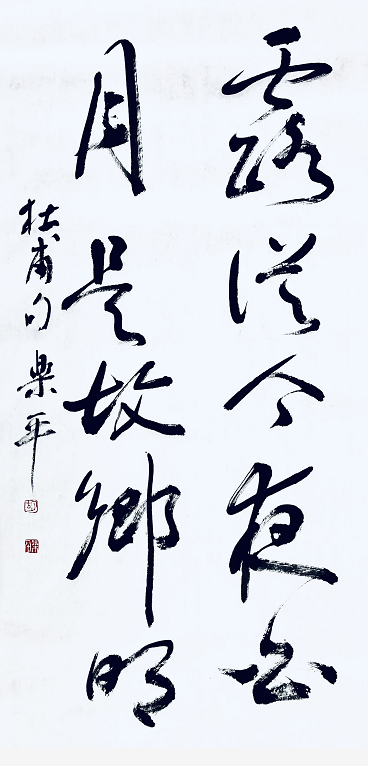 露從今夜白
月是故鄉明
杜甫句 樂平